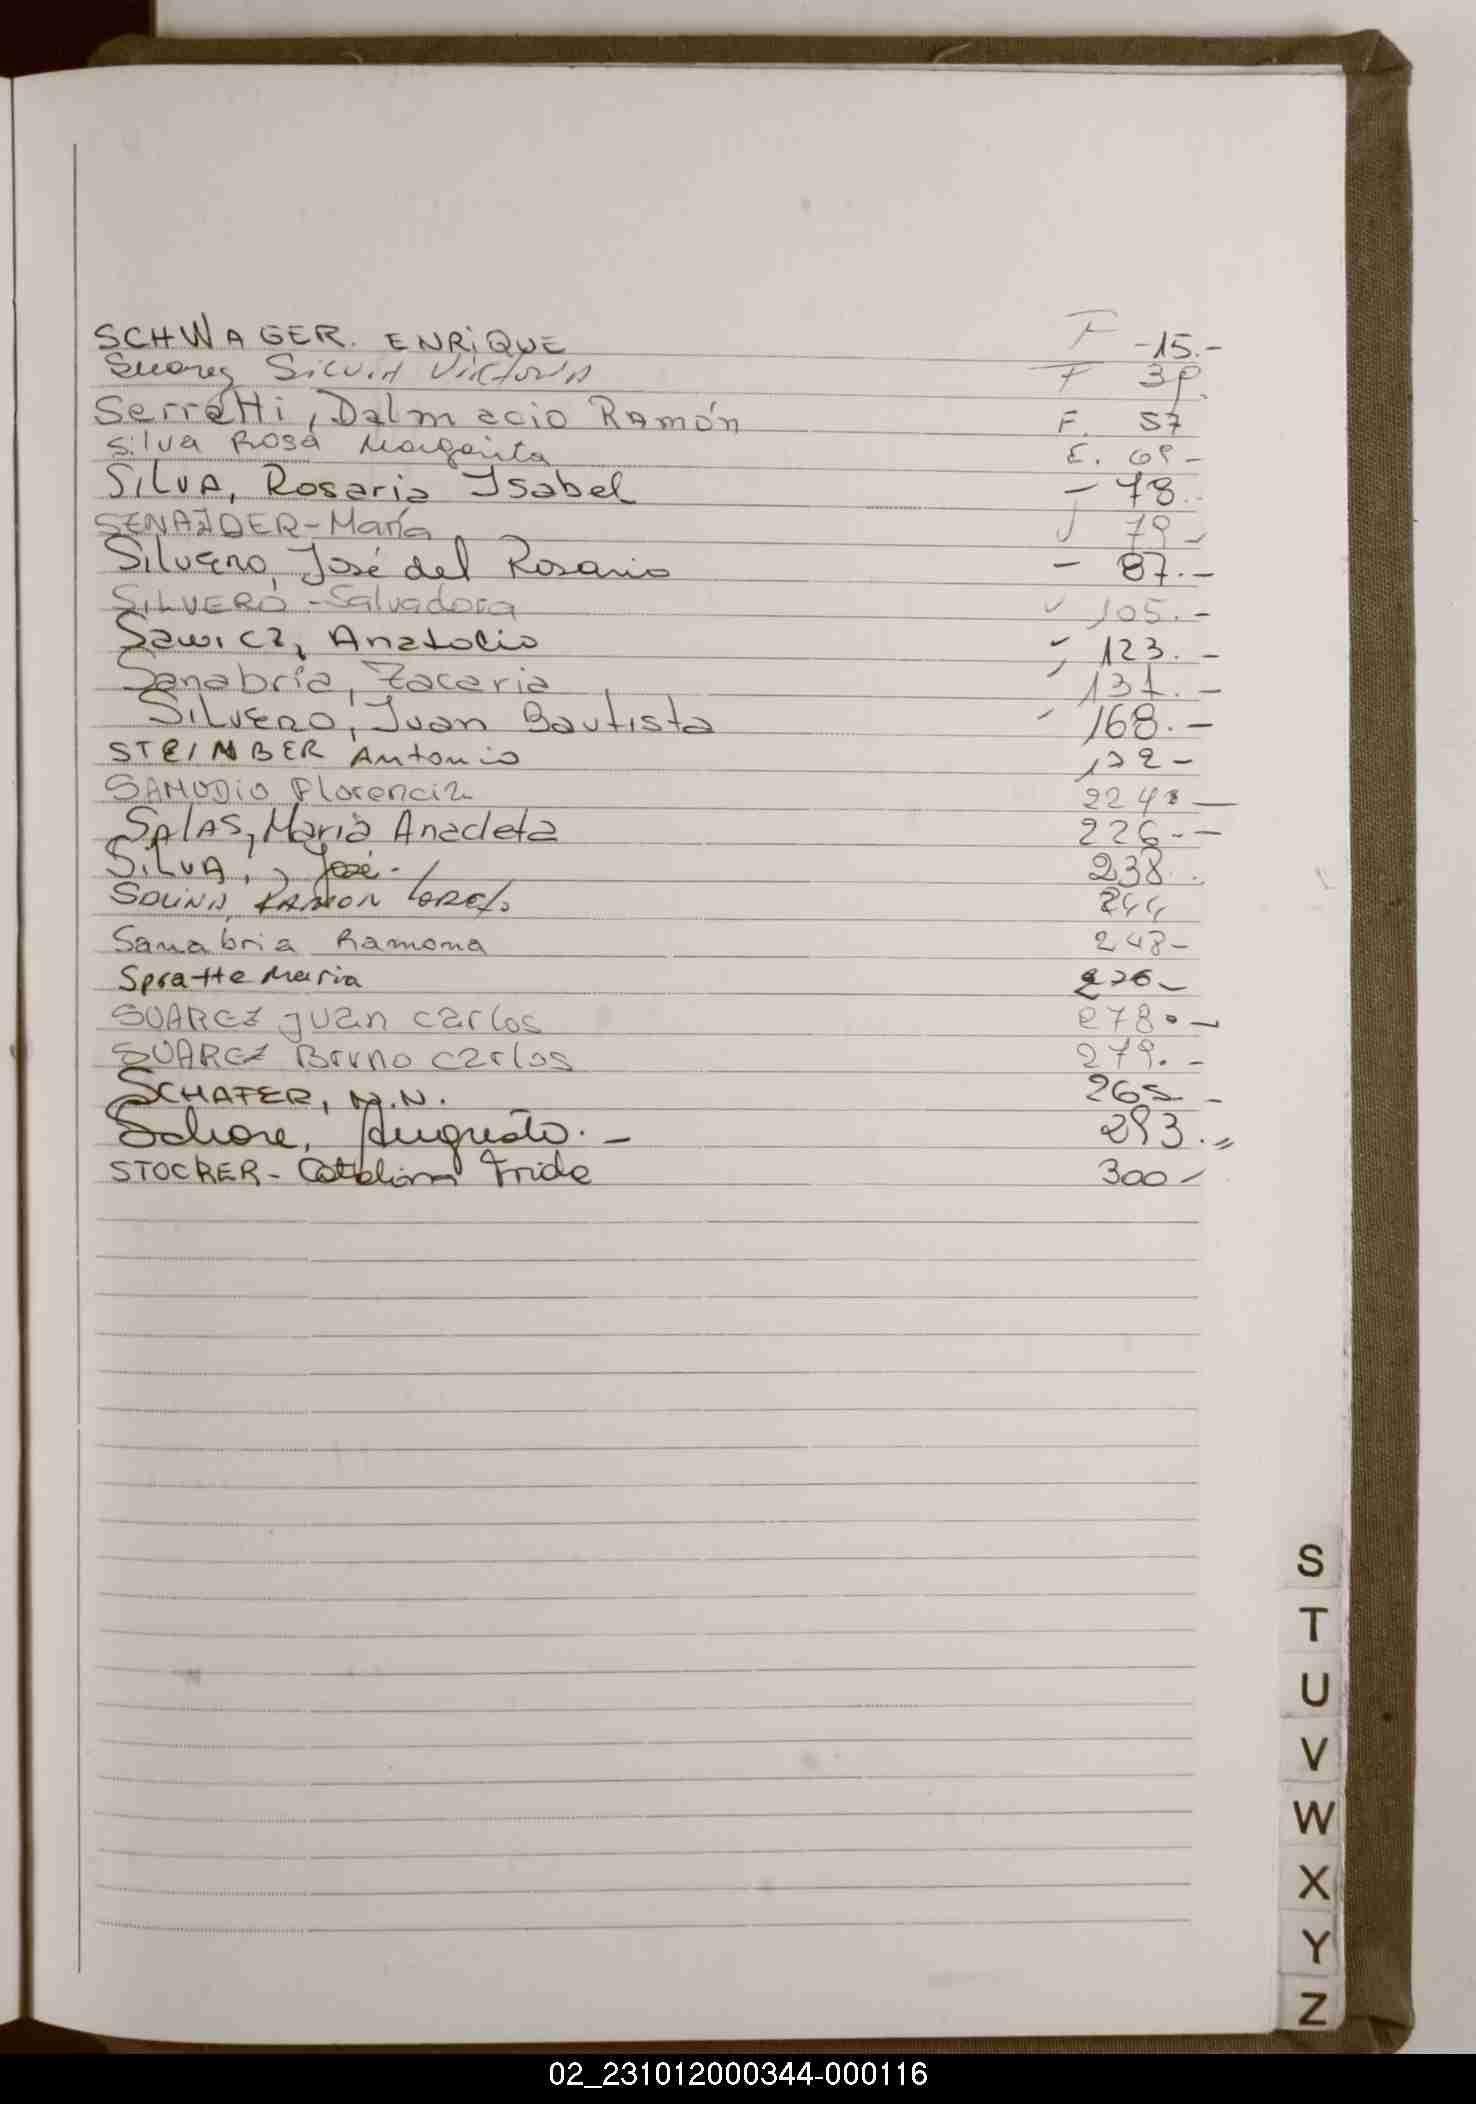 SCHWAGER. ENRIQUE F -15.-
Suarez Silvia Victoria F 39.
Serretti, Dalmacio Ramón F. 57
Silva Rosa Margarita F. 69-
SILVA, Rosaria Isabel - 78.
SZNAJDER-María 79-
Silvero, José del Rosario - 87.-
SILVERO-Salvadora 105.-
Sawicz, Anatolio - 123.-
Sanabria, Zacaria 131.-
SILVERO, Juan Bautista - 168.-
STEINBER Antonio 172-
SAMUDIO Florencia 224.-
SALAS, Maria Anacleta 226.-
SILVA, José.- 238.
RAMON 244
Sanabria Ramona 248-
Spratte Maria 276-
SUAREZ Juan Carlos 278.-
SUAREZ Bruno Carlos 279.-
SCHAFER, N.N. 265-
Augusto.- 293.=
STOCKER-Catalina Frida 300-
S
T
U
V
W
X
Y
Z
02_231012000344-000116